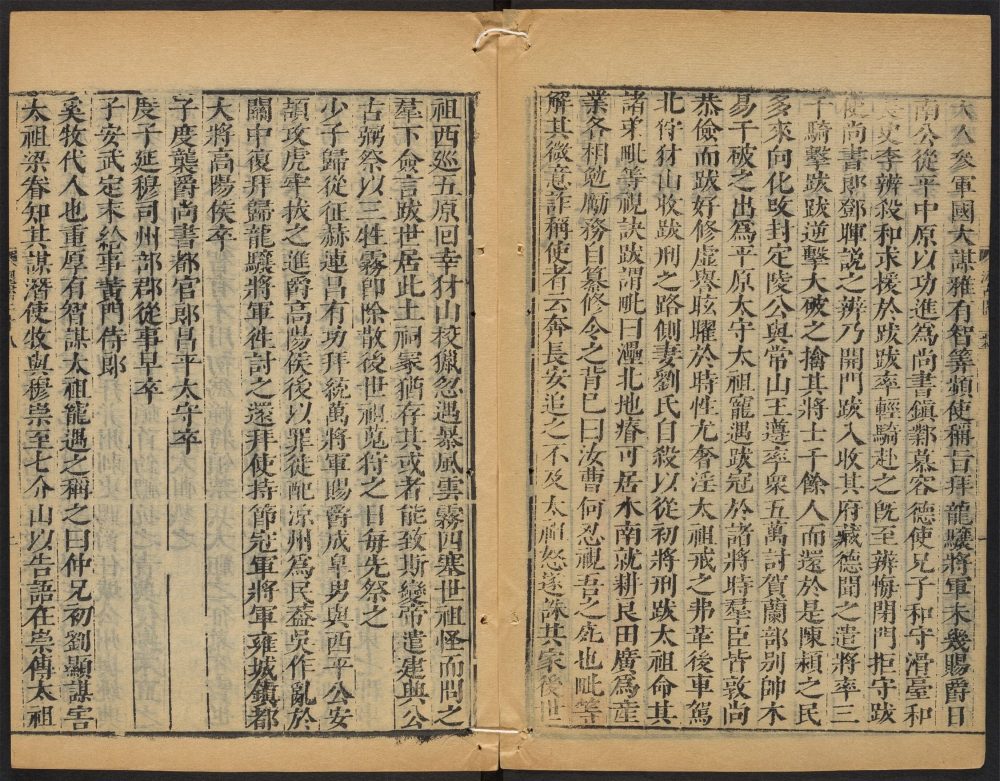 大人參軍國大謀雅有智筭頻使稱旨拜龍驤將軍未幾賜爵日
南公從平中原以功進爲尚書鎮鄴慕容德使兄子和守滑臺和
長史李辨殺和求援於跋跋率輕騎赴之旣至辨悔閉門拒守跋
使尚書郎鄧暉說之辨乃開門跋入收其府藏德聞之遣將率三
千騎擊跋跋逆擊大破之擒其將士千餘人而還於是陳潁之民
多來向化攺封定陵公與常山王遵率衆五萬討賀蘭部別帥木
易于破之出爲平原太守太祖寵遇跋冠於諸將時羣臣皆敦尚
恭儉而跋好修虛譽眩曜於時性尤奢淫太祖戒之弗革後車駕
北狩犲山收跋刑之路側妻劉氏自殺以從初將刑跋太祖命其
諸弟毗等視訣跋謂毗曰㶟北地瘠可居水南就耕良田廣爲產
業各相勉勵務自纂修令之背巳曰汝曹何忍視吾之死也毗等
解其微意詐稱使者云奔長安追之不及太祖怒遂誅其家後世
祖西巡五原回幸犲山校獵忽遇暴風雲霧四塞世祖怪而問之
羣下僉言跋世居此土祠冢猶存其或者能致斯變帝遣建與公
古弼祭以三牲霧卽除散後世祖蒐狩之日每先祭之
少子歸從征赫連昌有功拜統萬將軍賜爵成臯男與西平公安
頡攻虎牢拔之進爵高陽侯後以罪徙配涼州爲民葢吳作亂於
關中復拜歸龍驤將軍徃討之還拜使持節冠軍將軍雍城鎮都
大將高陽侯卒
子度襲爵尚書都官郎昌平太守卒
度子延穆司州部郡從事早卒
子安武定末給事黃門侍郎
奚牧代人也重厚有智謀太祖寵遇之稱之曰仲兄初劉顯謀害
太祖梁眷知其謀潛使牧與穆崇至七介山以告語在崇傳太祖